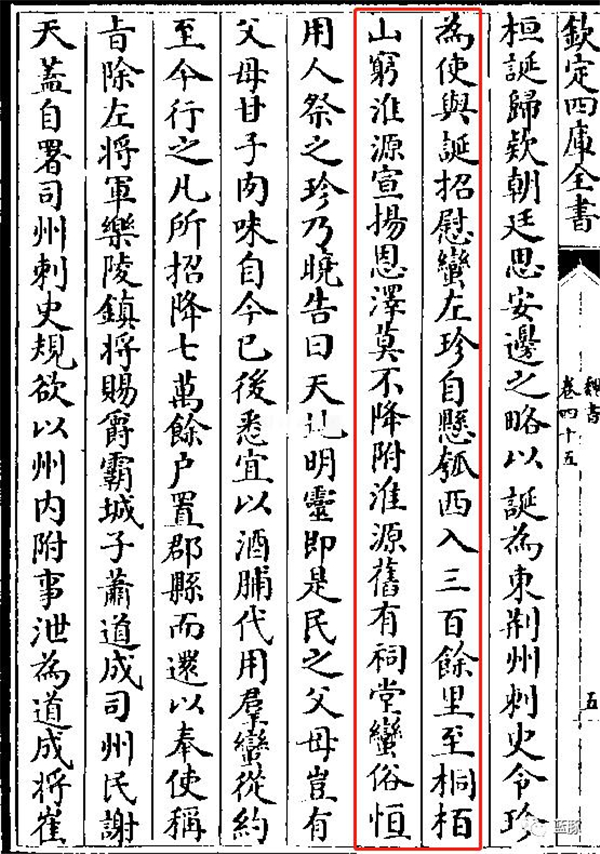 欽定四庫全書
魏書
卷四十五
五
桓誕歸欵朝廷思安邊之略以誕為東荆州刺史令珍
為使與誕招慰蠻左珍自懸瓠西入三百餘里至桐栢
山窮淮源宣揚恩澤莫不降附淮源舊有祠堂蠻俗恒
用人祭之珍乃曉告曰天地明靈即是民之父母豈有
父母甘子肉味自今已後悉宜以酒脯代用羣蠻從約
至今行之凡所招降七萬餘户置郡縣而還以奉使稱
旨除左將軍樂陵鎮將賜爵霸城子蕭道成司州民謝
天蓋自署司州刺史規欲以州内附事泄為道成將崔
蓝豚